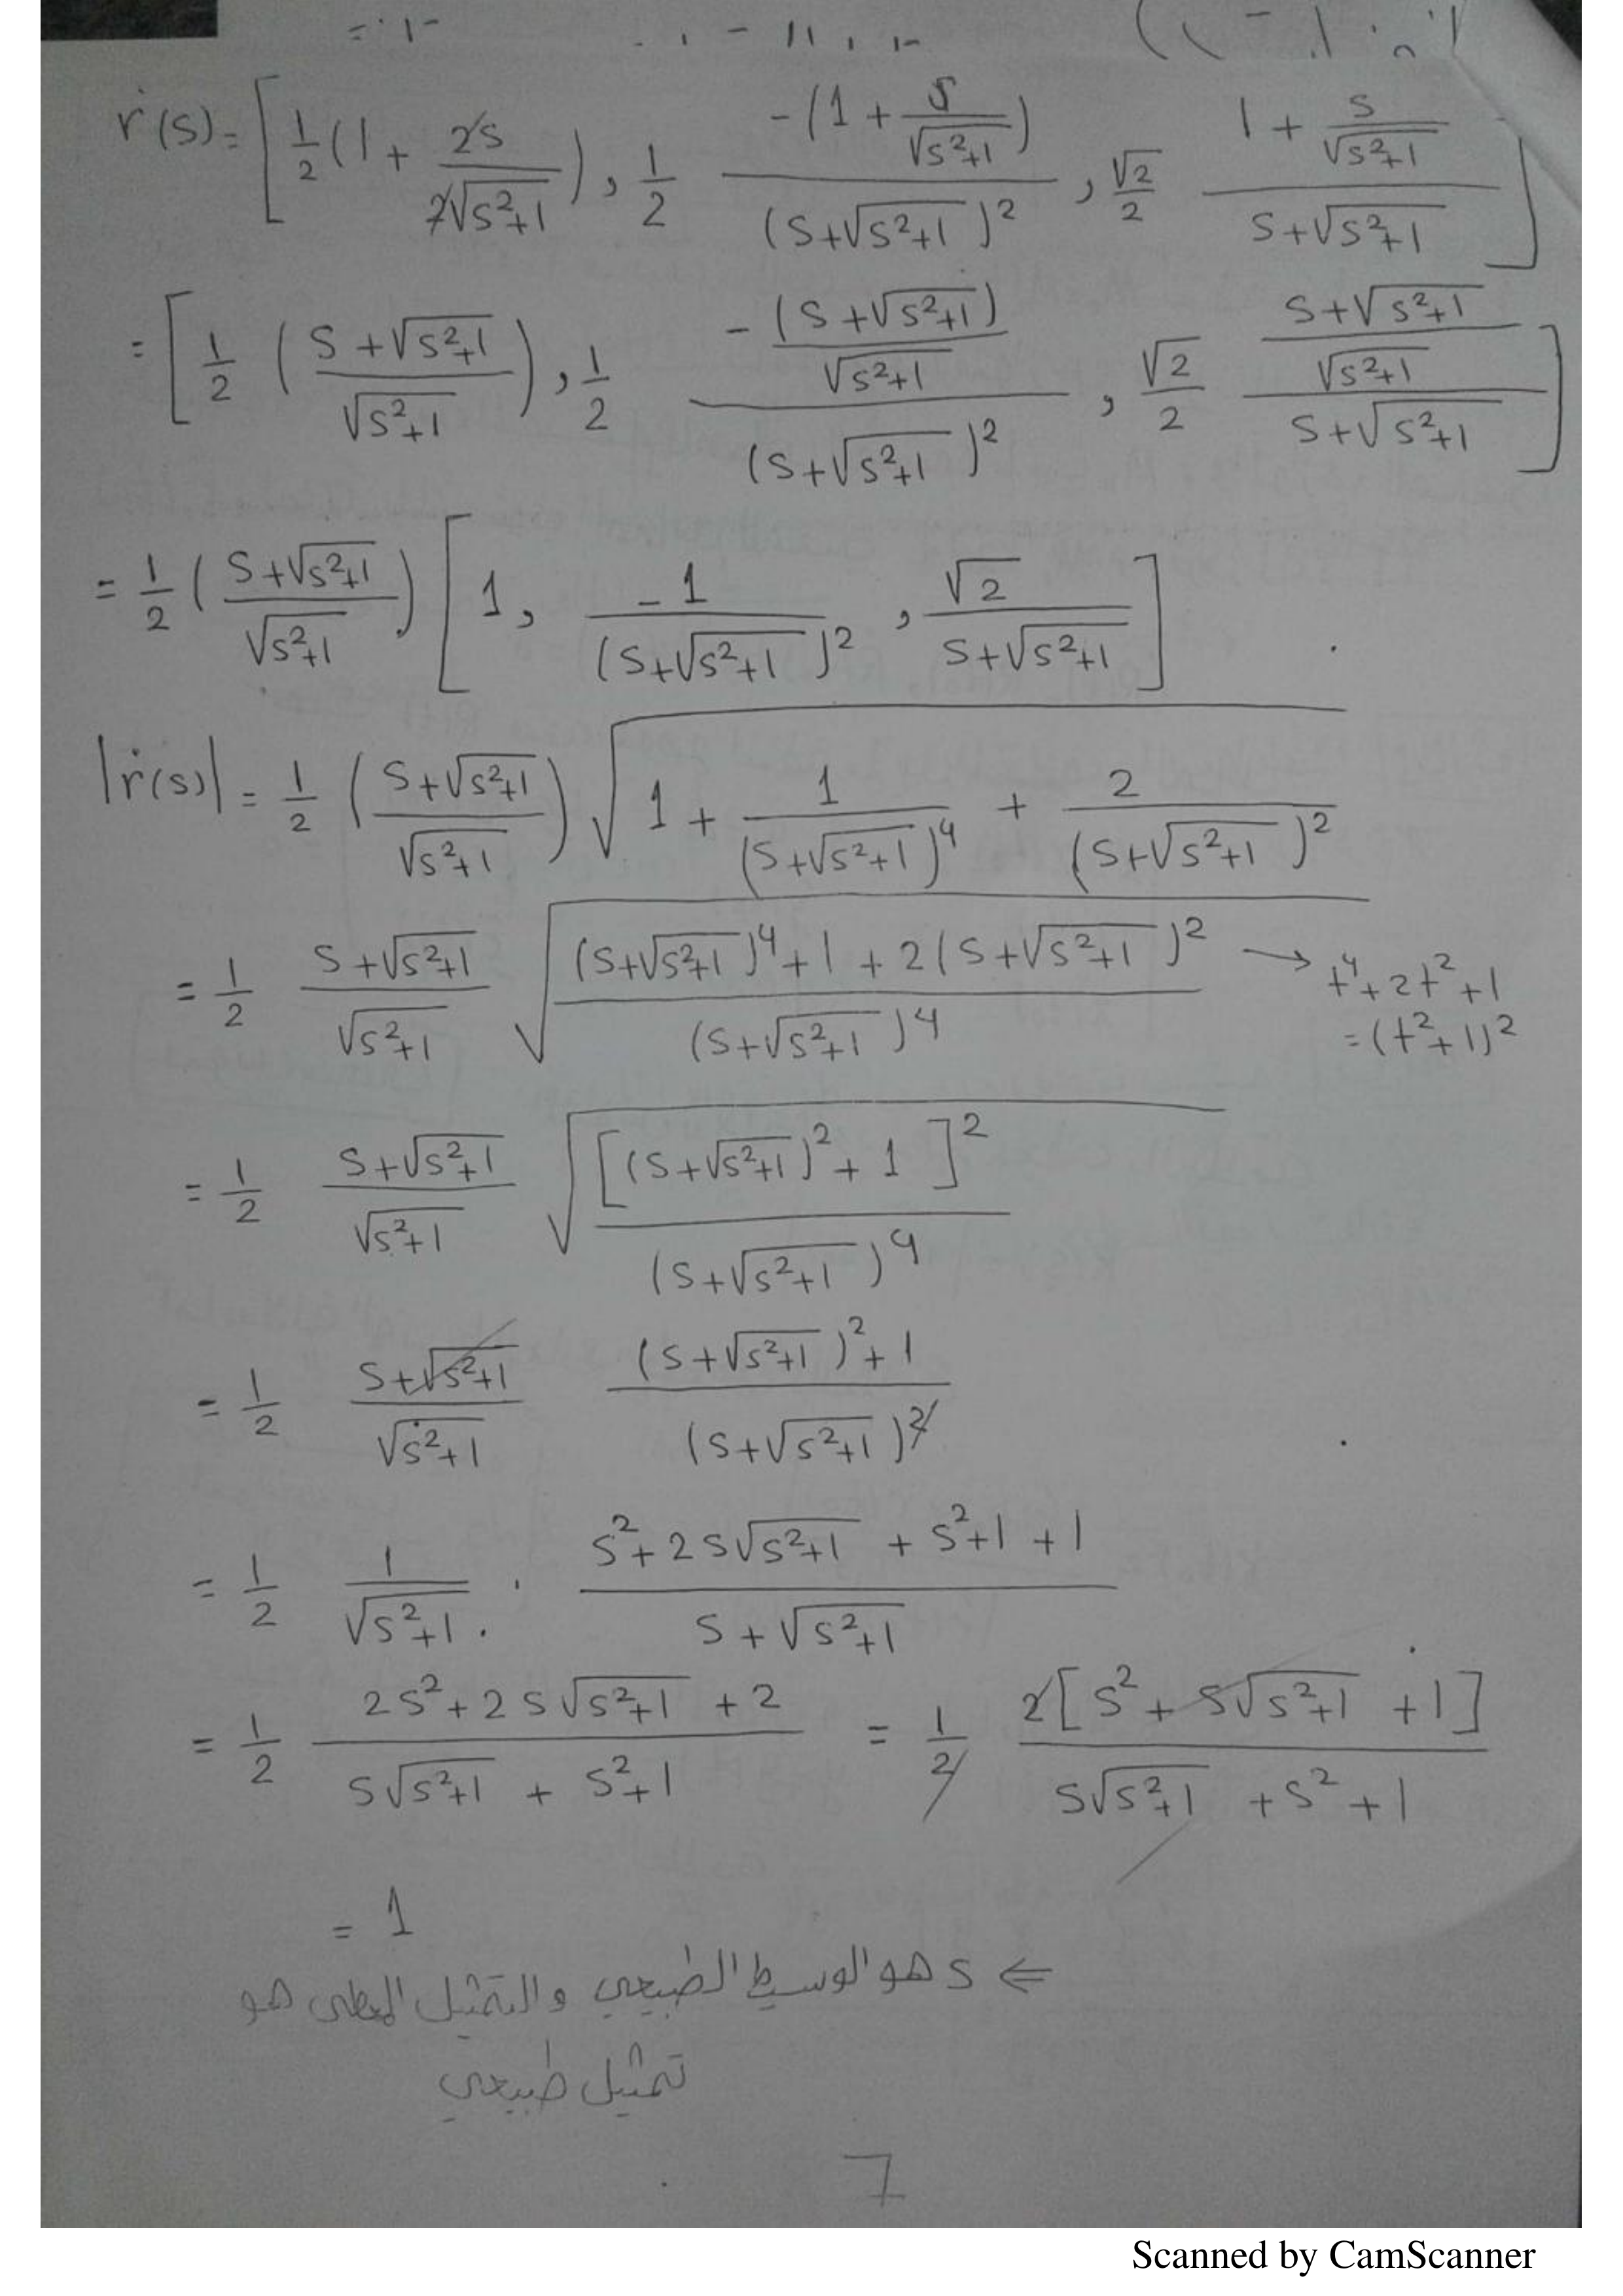 ṙ(s) = [ 1/2 (1 + 2s/(2√(s²+1))) , 1/2 · -(1 + s/√(s²+1)) / (s+√(s²+1))² , √2/2 · (1 + s/√(s²+1)) / (s+√(s²+1)) ]
= [ 1/2 ( (s+√(s²+1))/√(s²+1) ) , 1/2 · ( -(s+√(s²+1))/√(s²+1) ) / (s+√(s²+1))² , √2/2 · ( (s+√(s²+1))/√(s²+1) ) / (s+√(s²+1)) ]
= 1/2 ( (s+√(s²+1))/√(s²+1) ) [ 1 , -1/(s+√(s²+1))² , √2/(s+√(s²+1)) ]
|ṙ(s)| = 1/2 ( (s+√(s²+1))/√(s²+1) ) √( 1 + 1/(s+√(s²+1))⁴ + 2/(s+√(s²+1))² )
= 1/2 (s+√(s²+1))/√(s²+1) √( ((s+√(s²+1))⁴ + 1 + 2(s+√(s²+1))²) / (s+√(s²+1))⁴ ) → t⁴+2t²+1
=(t²+1)²
= 1/2 (s+√(s²+1))/√(s²+1) √( [(s+√(s²+1))² + 1]² / (s+√(s²+1))⁴ )
= 1/2 (s+√(s²+1))/√(s²+1) ((s+√(s²+1))² + 1) / (s+√(s²+1))²
= 1/2 1/√(s²+1) . (s²+2s√(s²+1) + s²+1 + 1) / (s+√(s²+1))
= 1/2 (2s²+2s√(s²+1) + 2) / (s√(s²+1) + s²+1) = 1/2 2[s² + s√(s²+1) + 1] / (s√(s²+1) + s² + 1)
= 1
⇐ s هو الوسيط الطبيعي والتمثيل المعطى هو
تمثيل طبيعي
7
Scanned by CamScanner